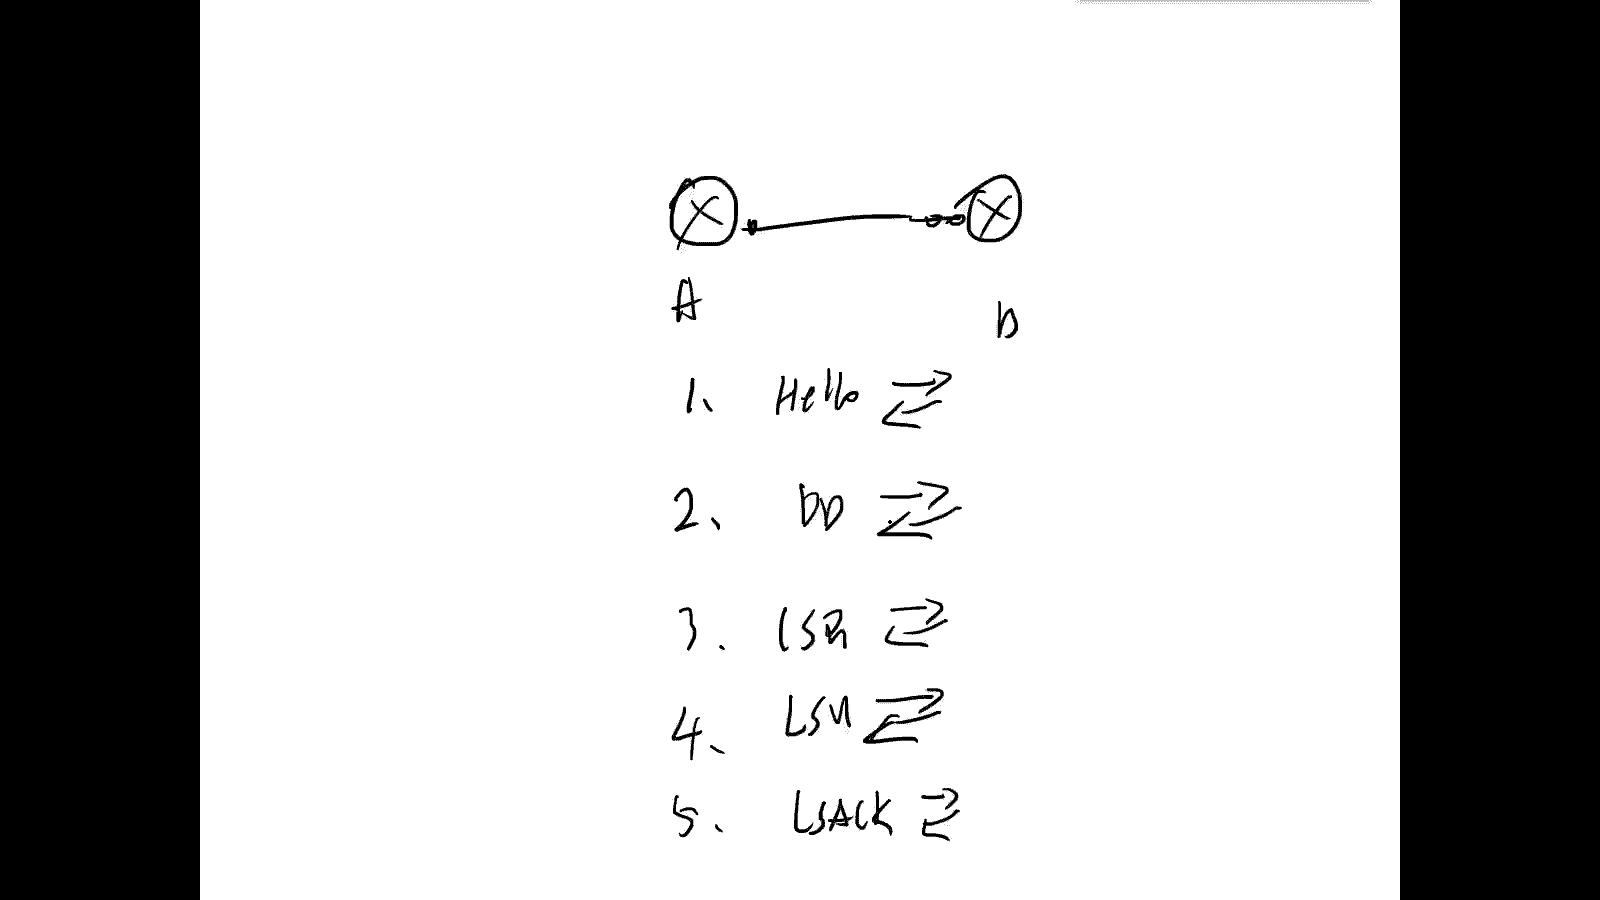 A
D
1、 Hello
2、 DD
3. LSR
4、 LSU
5. LSACK